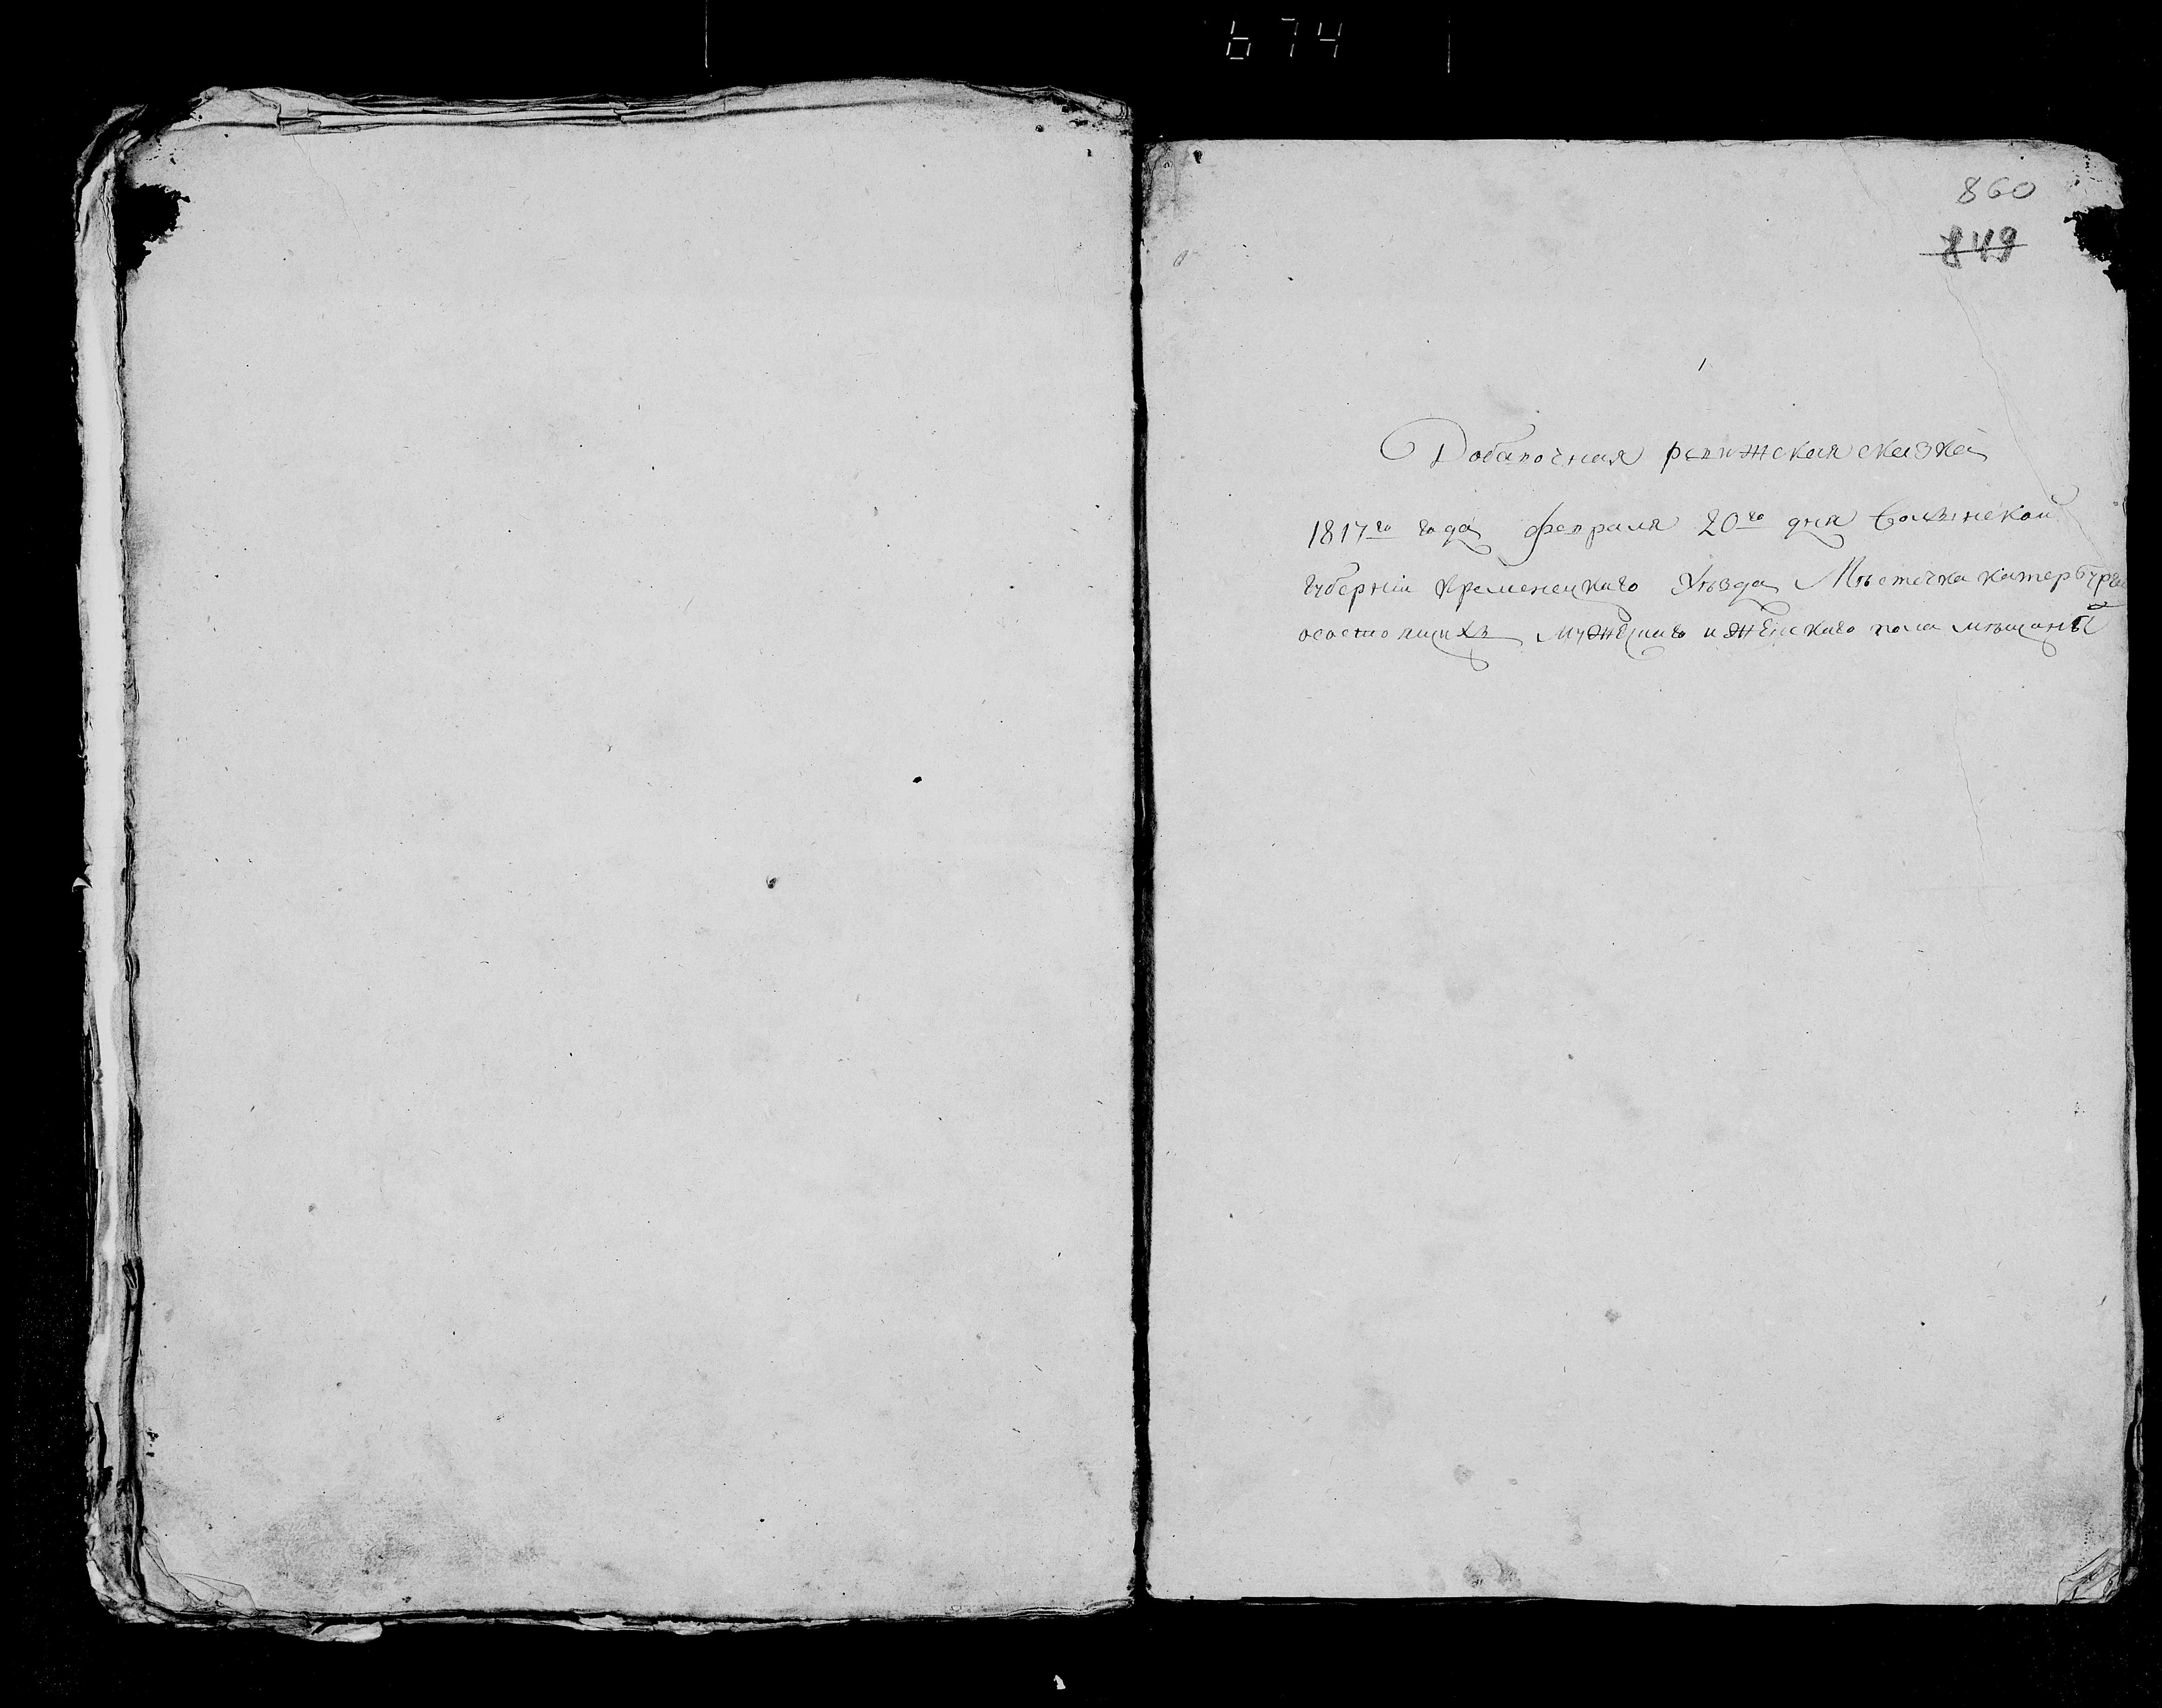 674
860
849
Добавочная ревижская сказка
1817го года февраля 20го дня Волынской
губерніи Кременецкаго уѣзда Мѣстечка катербурга
осостоящихъ мужескаго и женскаго пола мѣщанъ